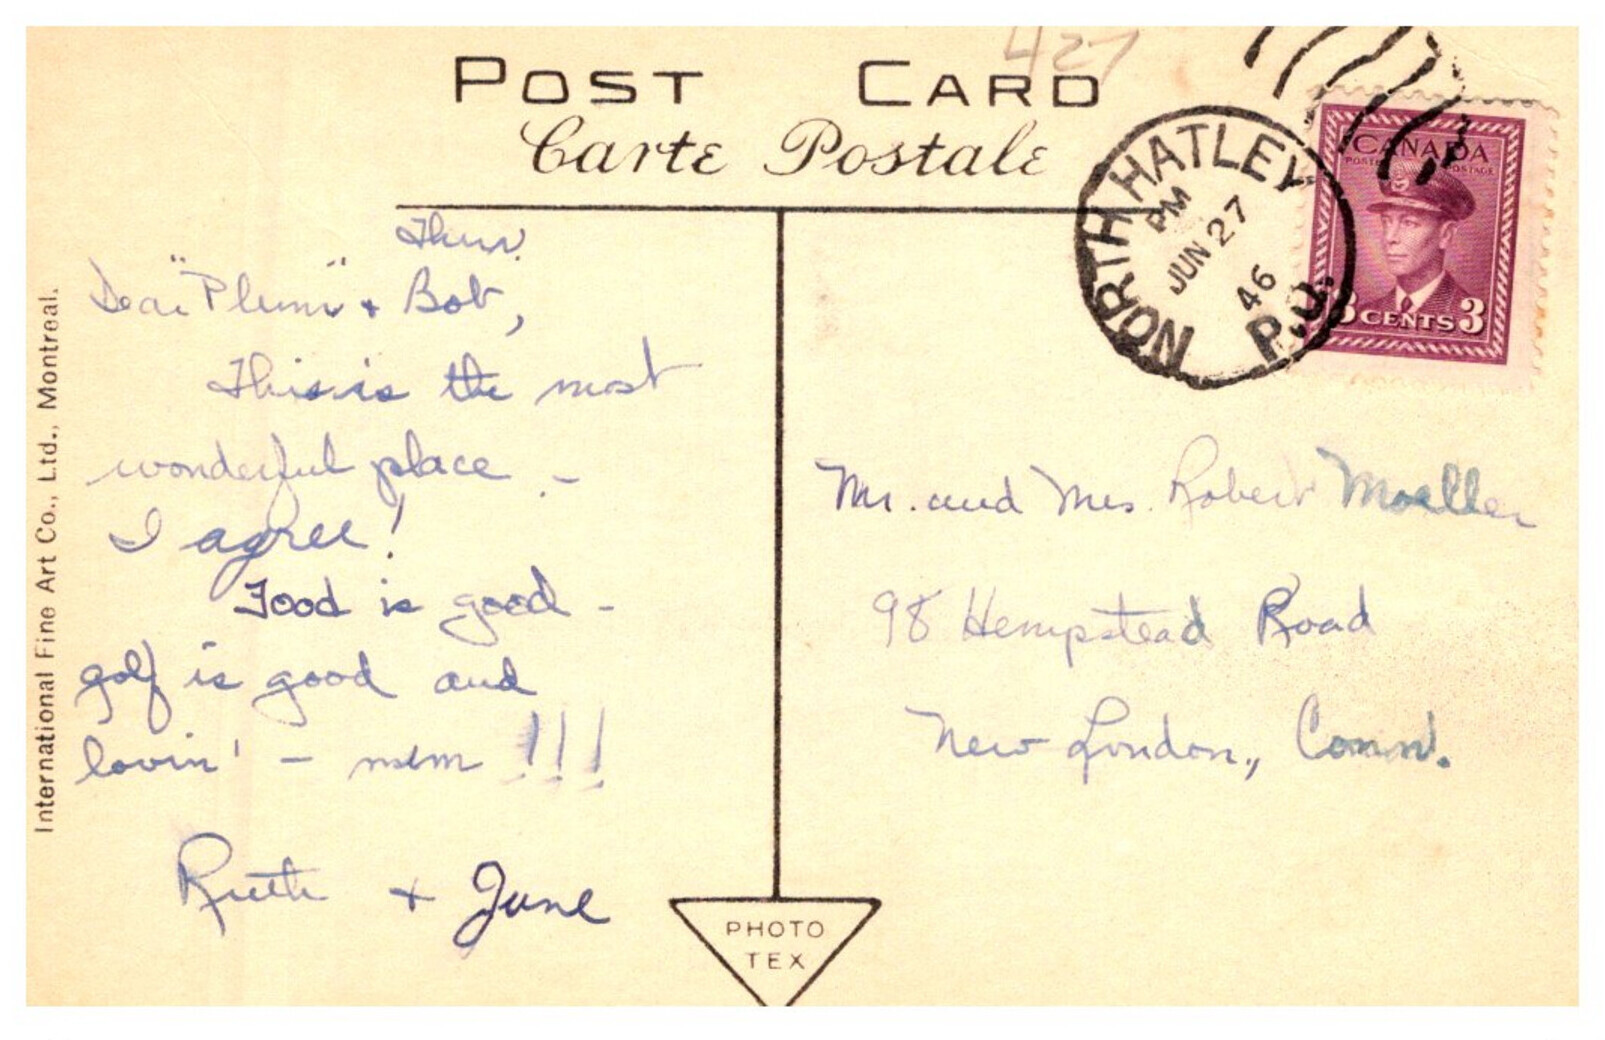 427
POST CARD
Carte Postale
NORTH HATLEY
PM
JUN 27
46
P.Q.
CANADA
POSTES POSTAGE
3 CENTS 3
Thurs.
Dear "Plum" + Bob,
This is the most
wonderful place -
I agree!
Food is good -
golf is good and
lovin' - mum !!!
Ruth + June
Mr. and Mrs. Robert Moeller
98 Hempstead Road
New London, Conn.
PHOTO
TEX
International Fine Art Co., Ltd., Montreal.